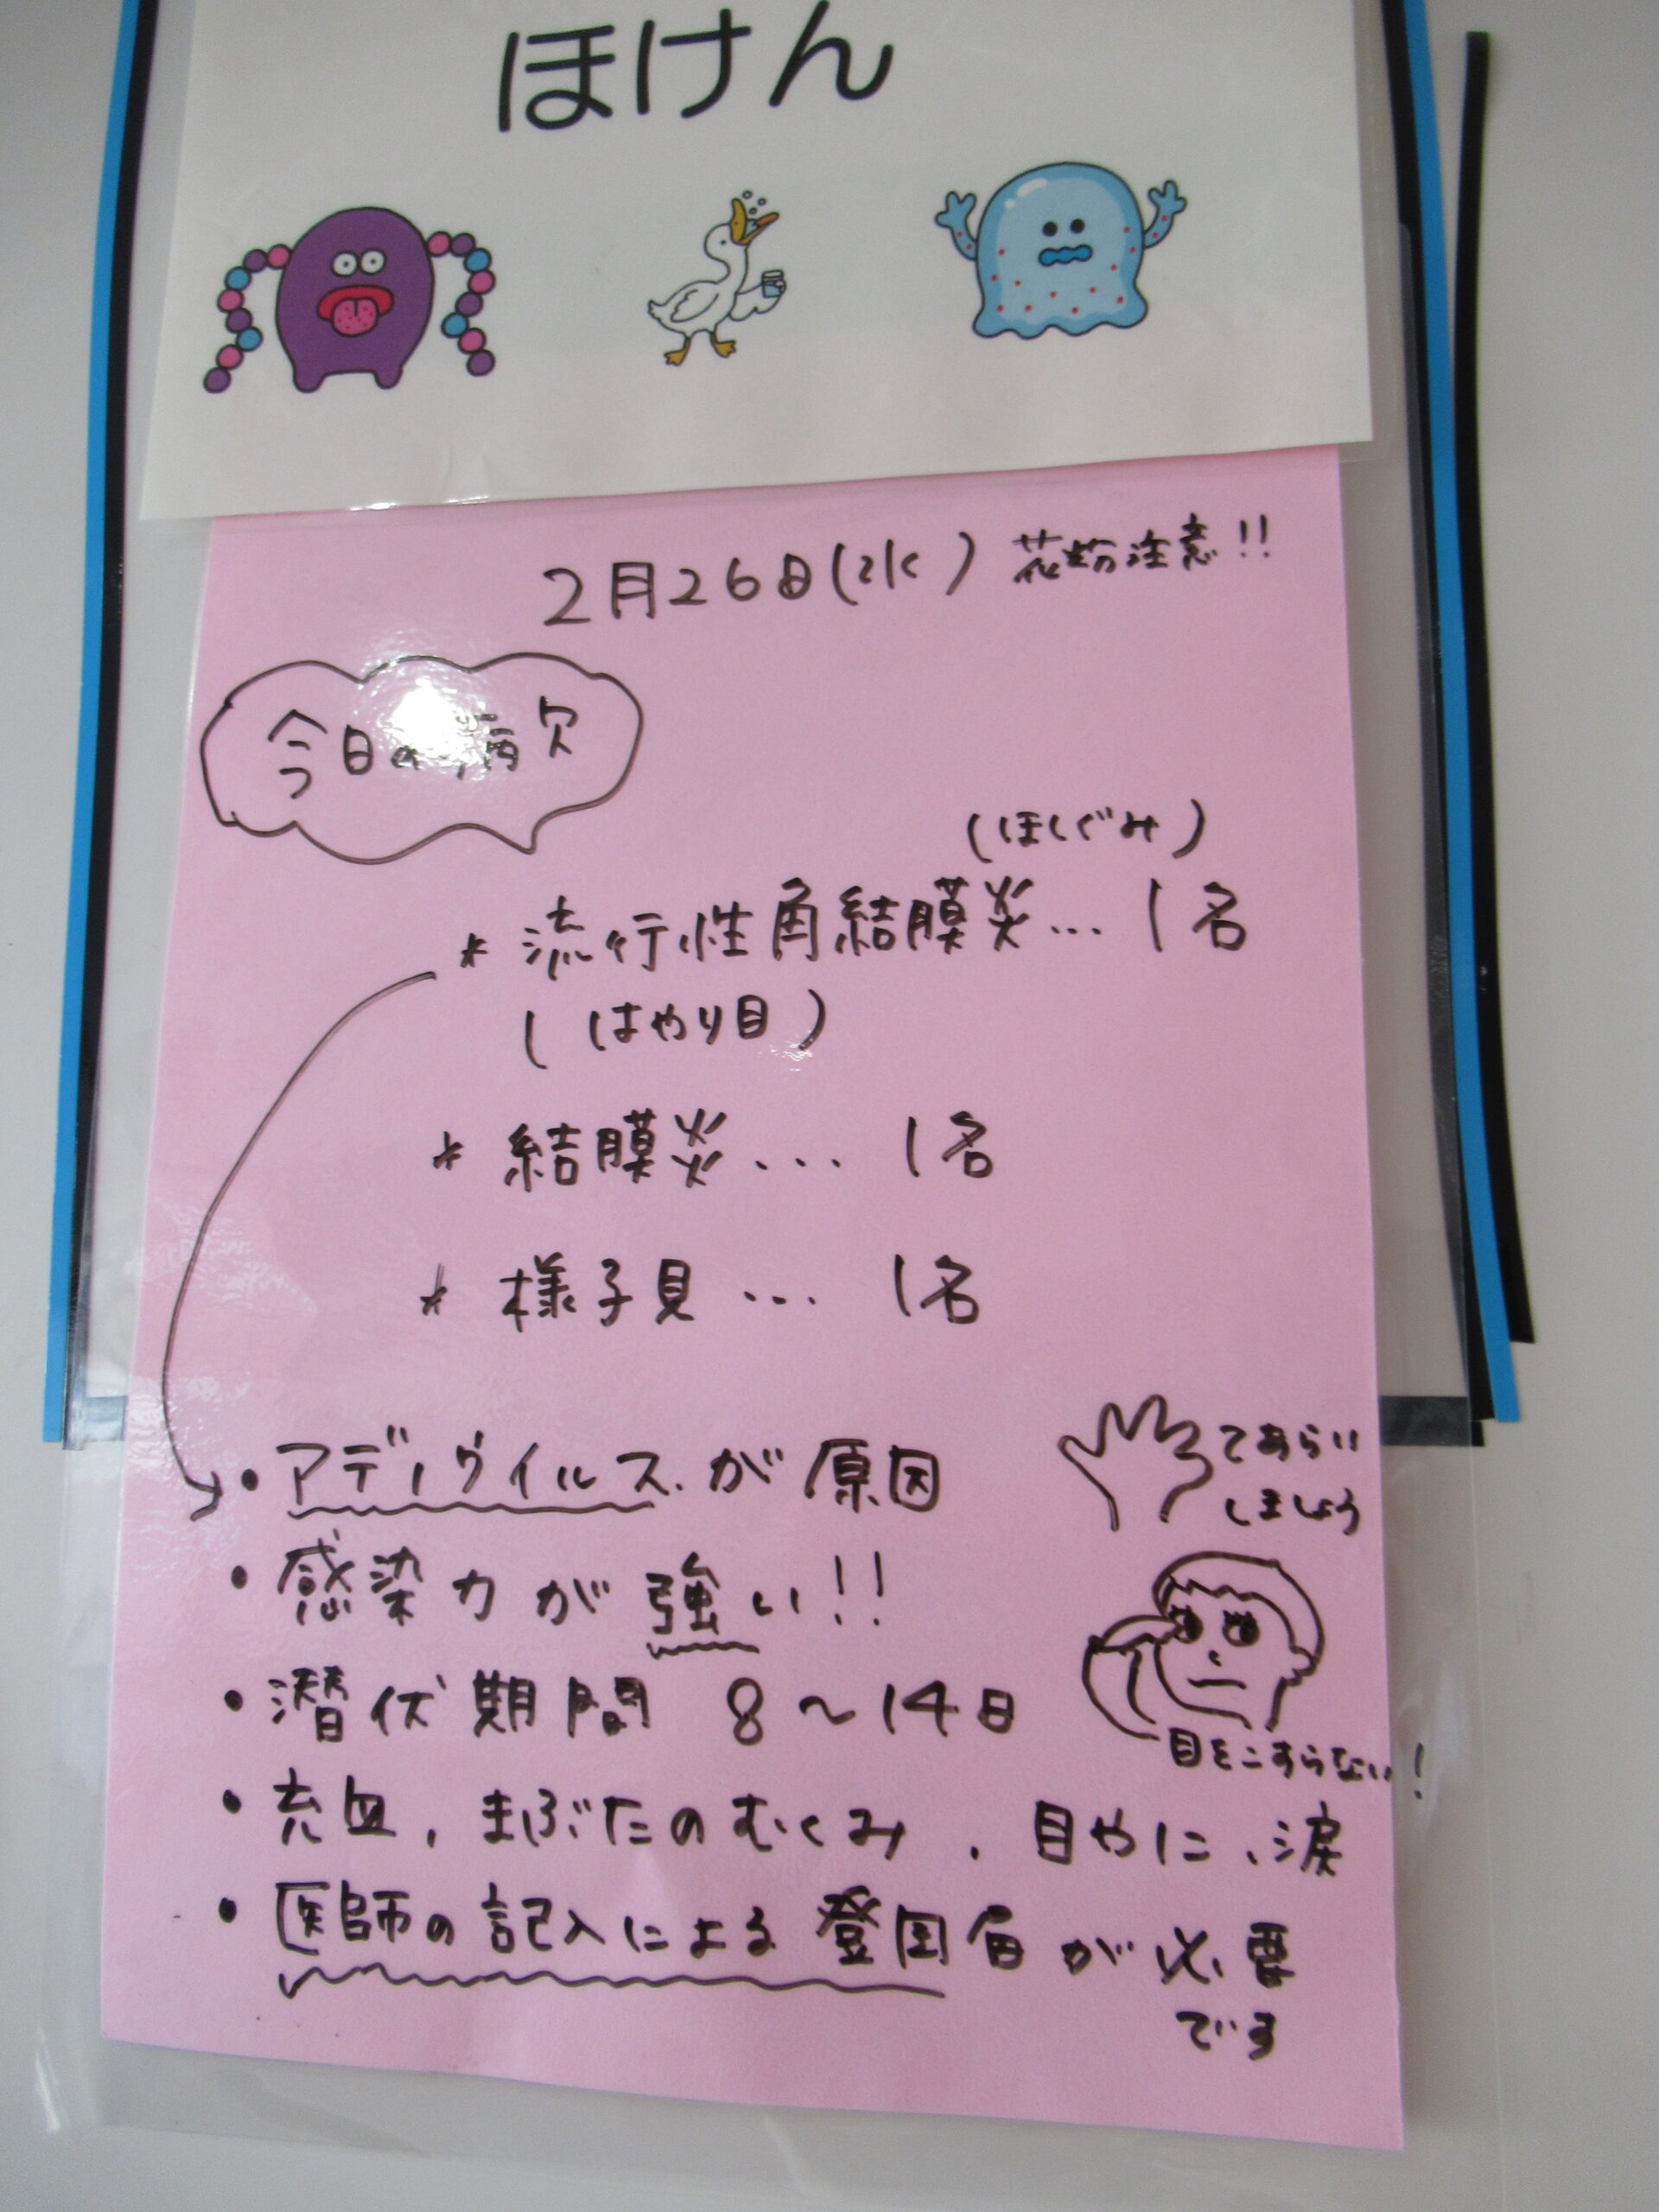 ほけん
2月26日(水) 花粉注意!!
今日の病欠
(ほしぐみ)
* 流行性角結膜炎... 1名
( はやり目 )
* 結膜炎... 1名
* 様子見... 1名
・アデノウイルスが原因
てあらい
しましょう
・感染力が強い!!
・潜伏期間 8〜14日
目をこすらない!
・充血、まぶたのむくみ、目やに、涙
・医師の記入による登園届が必要
です